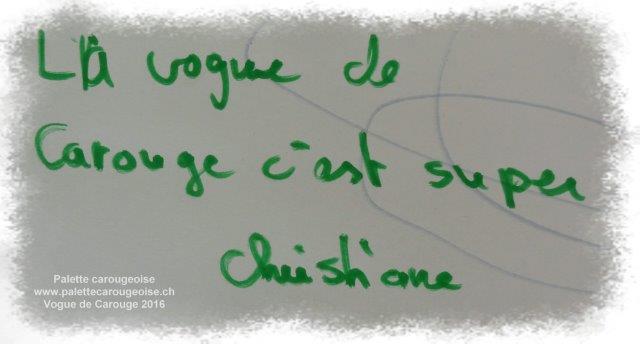 La vogue de
Carouge c'est super
Christiane
Palette carougeoise
www.palettecarougeoise.ch
Vogue de Carouge 2016